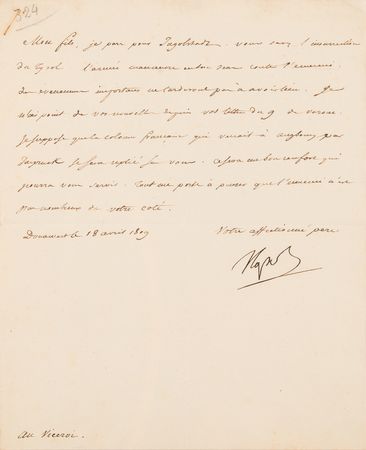 324
Mon fils, je pars pour Ingolstadt. vous savez l'insurrection
du Tyrol. l'armée manœuvre en ce sens contre l'ennemi.
des évènemens importans ne tarderont pas à avoir lieu. Je
n'ai point de vos nouvelles depuis votre lettre du 9 de
Je suppose que la colonne française qui venait à augsbourg par
Inspruck se sera repliée sur vous. ce sera un bon renfort qui
pourra vous servir. Tout me porte à penser que l'ennemi n'est
pas nombreux de votre coté.
Donawert le 18 avril 1809
Votre affectionné père
Nap
au Viceroi.